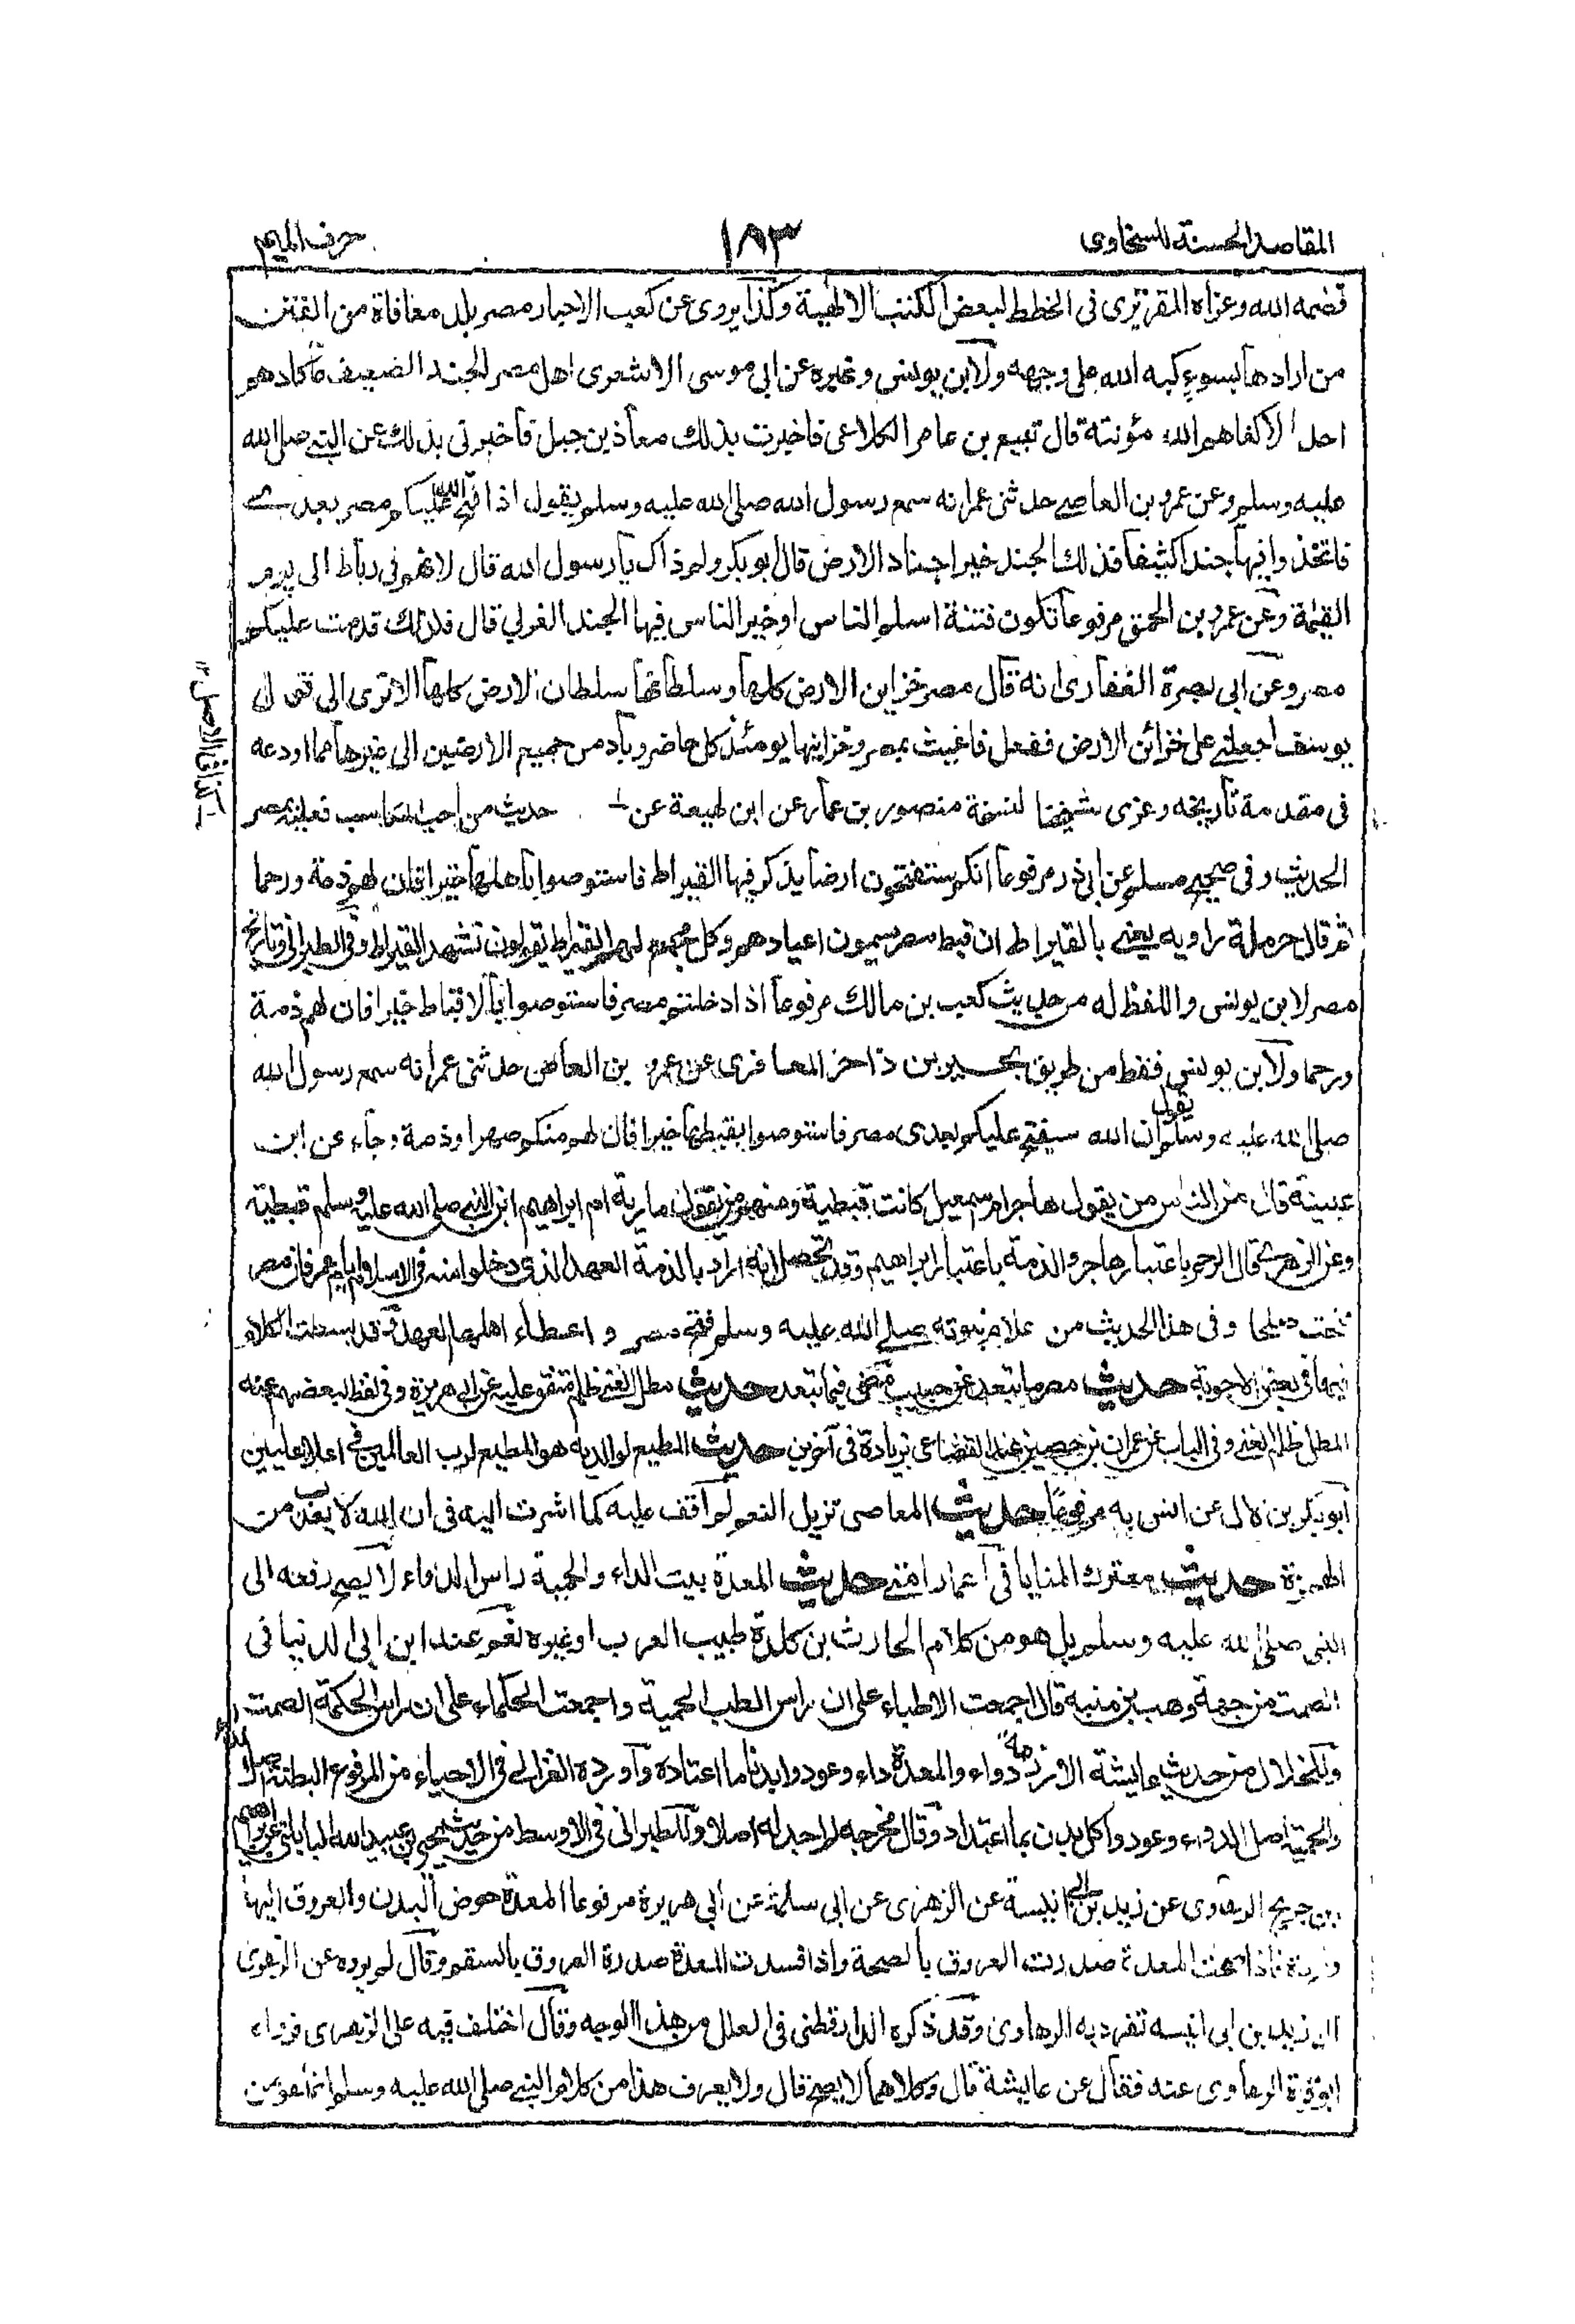 المقاصد الحسنة للسخاوى
١٨٣
حرف الميم
قصمه الله وعزاه المقريزى فى الخطط لبعض الكتب الالهية وكذا يروى عن كعب الاحبار مصر بلد معافاة من الفتن
من ارادها بسوء كبه الله على وجهه ولابن يونس وغيره عن ابى موسى الاشعرى اهل مصر الجند الضعيف ما كادهم
احد الا كفاهم الله مؤنته قال تبيع بن عامر الكلاعى فاخبرت بذلك معاذ بن جبل فاخبرنى بذلك عن النبى صلى الله
عليه وسلم وعن عمرو بن العاص حدثنى عمر انه سمع رسول الله صلى الله عليه وسلم يقول اذا فتح الله عليكم مصر بعدى
فاتخذوا فيها جندا كثيفا فذلك الجند خير اجناد الارض قال ابو بكر ولم ذاك يا رسول الله قال لانهم فى رباط الى يوم
القيمة وعن عمرو بن الحمق مرفوعا تكون فتنة اسلم الناس او خير الناس فيها الجند الغربى قال فلذلك قدمت عليكم
مصر وعن ابى بصرة الغفارى انه قال مصر خزاين الارض كلها وسلطانها سلطان الارض كلها الا ترى الى قول
يوسف اجعلنى على خزائن الارض ففعل فاغيث بمصر وخزاينها يومئذ كل حاضر وباد من جميع الارضين الى غيرها مما اودعه
فى مقدمة تاريخه وعزى شيخنا لنسخة منصور بن عمار عن ابن لهيعة عن حديث من احب المكاسب فعليه بمصر
كذا فى الاصل ١٢
الحديث وفى صحيح مسلم عن ابى ذر مرفوعا انكم ستفتحون ارضا يذكر فيها القيراط فاستوصوا باهلها خيرا فان لهم ذمة ورحما
ثم قال حرملة راويه يعنى بالقيراط ان قبط مصر يسمون اعيادهم وكل مجمع لهم القيراط يقولون نشهد القيراط وفى الطبرانى وتاريخ
مصر لابن يونس واللفظ له من حديث كعب بن مالك مرفوعا اذا دخلتم مصر فاستوصوا بالاقباط خيرا فان لهم ذمة
ورحما ولابن يونس فقط من طريق بحير بن ذاخر المعافرى عن عمرو بن العاص حدثنى عمر انه سمع رسول الله
صلى الله عليه وسلم يقول ان الله سيفتح عليكم بعدى مصر فاستوصوا بقبطها خيرا فان لهم منكم صهرا وذمة وجاء عن ابن
عيينة قال من الناس من يقول هاجر ام اسمعيل كانت قبطية ومنهم من يقول مارية ام ابراهيم ابن النبى صلى الله عليه وسلم قبطية
وعن الزهرى قال الرحم باعتبار هاجر والذمة باعتبار ابراهيم وقد تحصل انه اراد بالذمة العهد الذى دخلوا منه فى الاسلام ايام عمر فان مصر
فتحت صلحا وفى هذا الحديث من علام نبوته صلى الله عليه وسلم فتح مصر و اعطاء اهلها العهد وقد بسطت الكلام
فيها فى بعض الاجوبة حديث مصر ما تبعد عن حبيب مضى فيما تبعد حديث مطل الغنى ظلم متفق عليه عن ابى هريرة وفى لفظ لبعضهم عنه
المطل ظلم الغنى وفى الباب عن عمران بن حصين عند القضاعى بزيادة فى آخرين حديث المطيع لوالديه هو المطيع لرب العالمين فى اعلا عليين
ابو بكر بن لال عن انس به مرفوعا حديث المعاصى تزيل النعم لم اقف عليه كما اشرت اليه فى ان الله لا يعذب من
الهمزة حديث معترك المنايا فى اعمار امتى حديث المعدة بيت الداء والحمية راس الدواء لا يصح رفعه الى
النبى صلى الله عليه وسلم بل هو من كلام الحارث بن كلدة طبيب العرب او غيره نعم عند ابن ابى الدنيا فى
الصمت من جهة وهب بن منبه قال اجمعت الاطباء على ان راس الطب الحمية واجمعت الحكماء على ان راس الحكمة الصمت
وللخلال من حديث عايشة الازم دواء والمعدة داء وعودوا بدنا ما اعتاده واورده الغزالى فى الاحياء من المرفوع البطنة اصل الداء
والحمية اصل الدواء وعودوا كل بدن بما اعتاد وقال مخرجه لم اجد له اصلا وللطبرانى فى الاوسط من حديث يحيى بن عبيد الله البابلتى عن ابراهيم
بن جريج الرهاوى عن زيد بن ابى انيسة عن الزهرى عن ابى سلمة عن ابى هريرة مرفوعا المعدة حوض البدن والعروق اليها
واردة فاذا صحت المعدة صدرت العروق بالصحة واذا فسدت المعدة صدرة العروق بالسقم وقال لم يروه عن الزهرى
الا زيد بن ابى انيسه تفرد به الرهاوى وقد ذكره الدارقطنى فى العلل من هذا الوجه وقال اختلف فيه على الزهرى فرواه
ابو قرة الرهاوى عنه فقال عن عايشة قال وكلاهما لا يصح قال ولا يعرف هذا من كلام النبى صلى الله عليه وسلم انما هو من